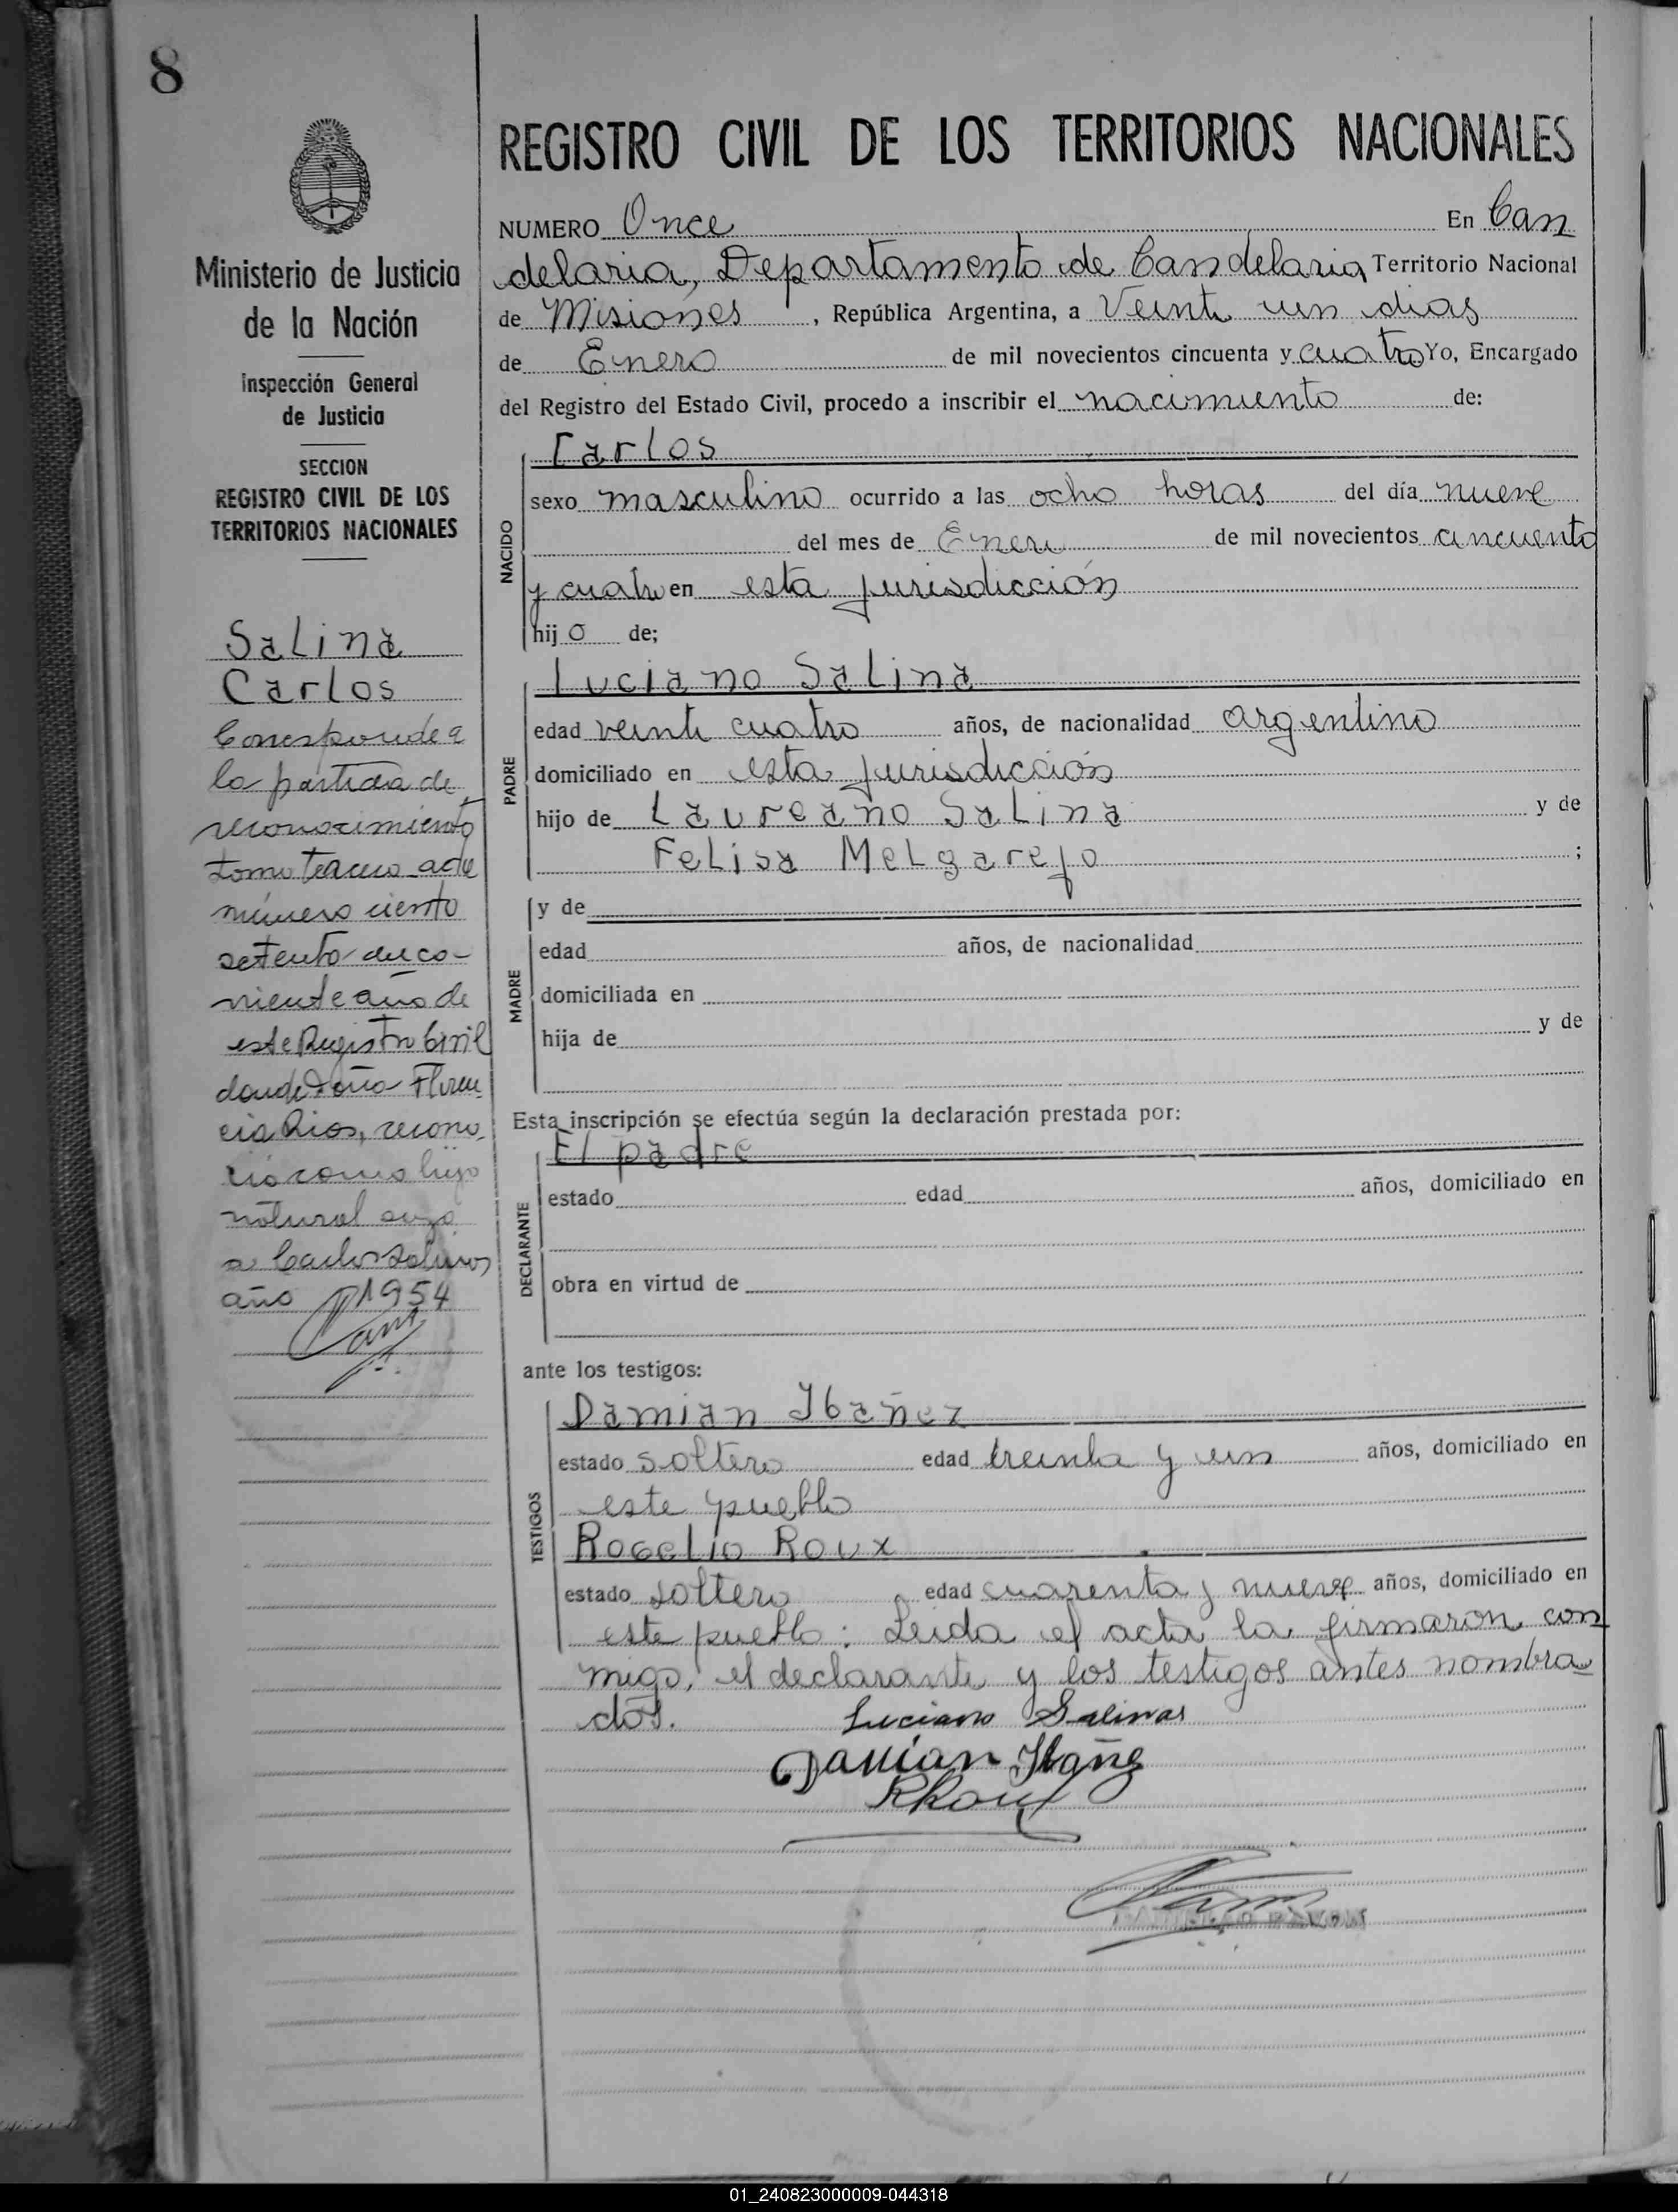 8
Ministerio de Justicia
de la Nación
Inspección General
de Justicia
SECCION
REGISTRO CIVIL DE LOS
TERRITORIOS NACIONALES
Salina
Carlos
Corresponde a
la partida de
reconocimiento
tomo tercero acta
número ciento
setenta
este Registro Civil
donde Doña Floren
cia Rios, recono
ció como hijo
natural suyo
a Carlos Salinas
año 1954
REGISTRO CIVIL DE LOS TERRITORIOS NACIONALES
NUMERO Once En Can
delaria, Departamento de Candelaria Territorio Nacional
de Misiones, República Argentina, a Veinte un dias
de Enero de mil novecientos cincuenta y cuatro Yo, Encargado
del Registro del Estado Civil, procedo a inscribir el nacimiento de:
NACIDO
Carlos
sexo masculino ocurrido a las ocho horas del día nueve
del mes de Enero de mil novecientos cincuenta
y cuatro en esta jurisdicción
hijo de;
PADRE
Luciano Salina
edad veinte cuatro años, de nacionalidad argentino
domiciliado en esta jurisdicción
hijo de Laureano Salina y de
Felisa Melgarejo ;
MADRE
y de
edad años, de nacionalidad
domiciliada en
hija de y de
Esta inscripción se efectúa según la declaración prestada por:
DECLARANTE
El padre
estado edad años, domiciliado en
obra en virtud de
ante los testigos:
TESTIGOS
Damian Ibañez
estado soltero edad treinta y un años, domiciliado en
este pueblo
Rogelio Roux
estado soltero edad cuarenta y nueve años, domiciliado en
este pueblo: Leida el acta la firmaron con
migo, el declarante y los testigos antes nombra
dos. Luciano Salinas
Damian Ibañez
RRoux
01_240823000009-044318